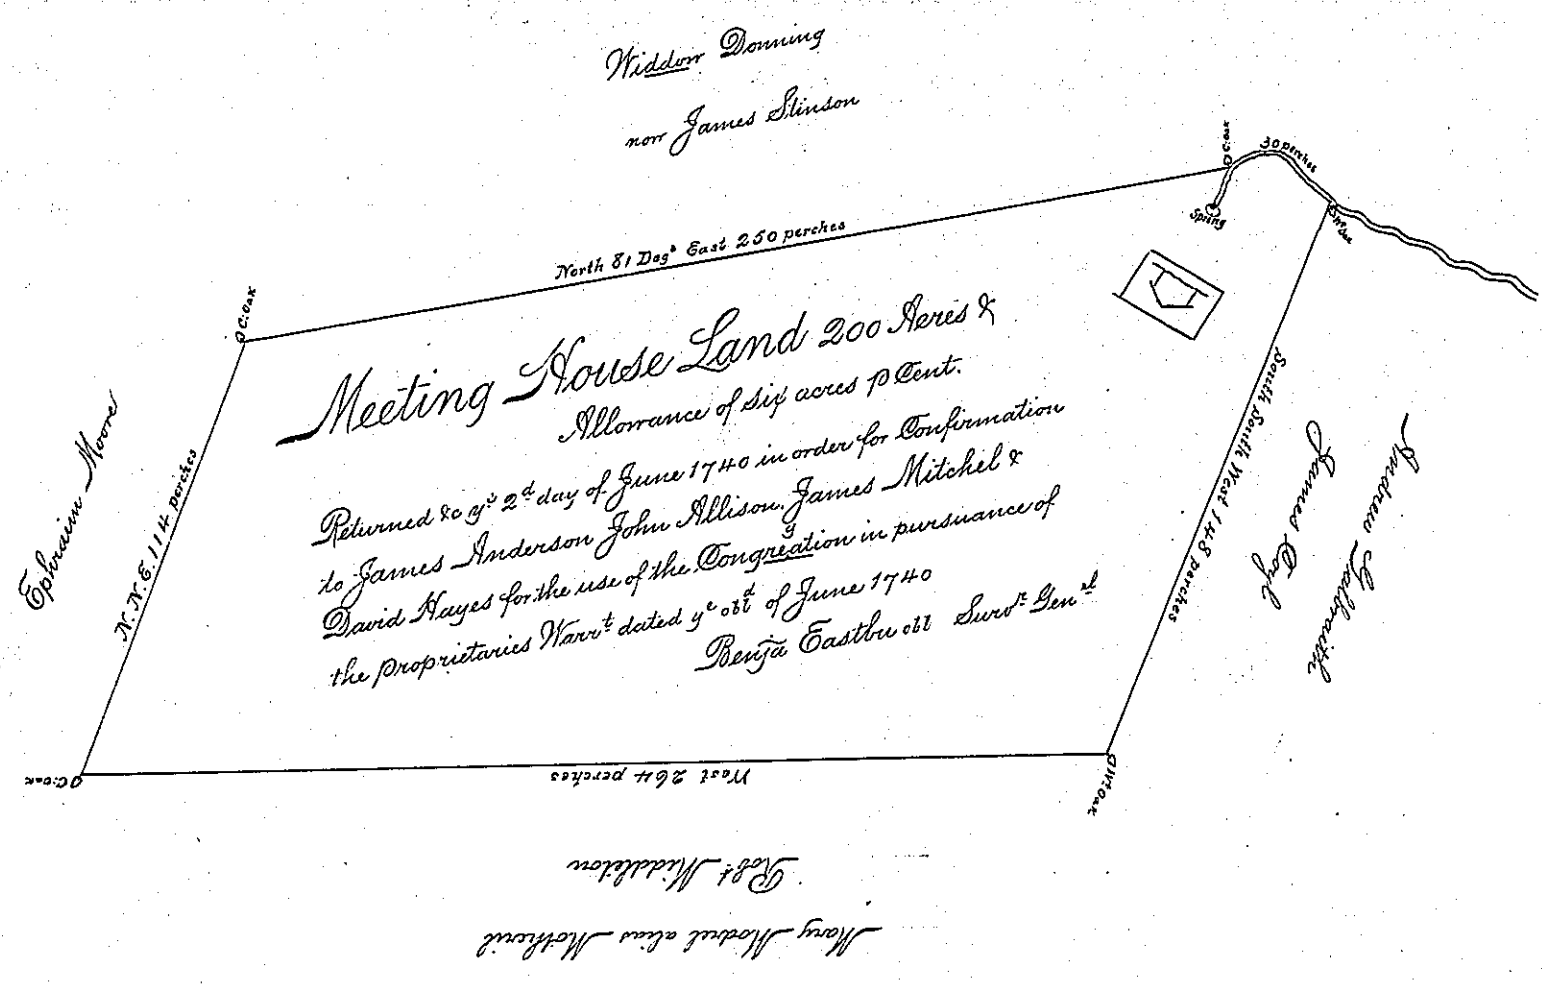 Widdow Donning
now James Stinson
C: oak
30 perches
Spring
Wt Oak
North 81 Degs East 250 perches
C: oak
Meeting House Land 200 Acres &
Allowance of six acres p Cent.
Returned &c ye 2d day of June 1740 in order for Confirmation
to James Anderson John Allison, James Mitchel &
David Hayes for the use of the Congregation in pursuance of
the Proprietaries Warrt dated ye of June 1740
Benja Surv.r Gen.el
Ephraim Moore
N. N. E. 114 perches
South South West 148 perches
James Coyl
Andrew Galbraith
C: oak
West 264 perches
Wt Oak
Robt Middleton
Mary Modrel alias Motheril